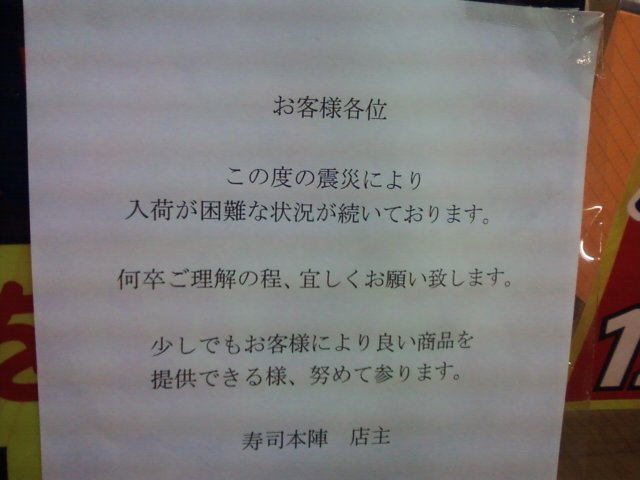 お客様各位
この度の震災により
入荷が困難な状況が続いております。
何卒ご理解の程、宜しくお願い致します。
少しでもお客様により良い商品を
提供できる様、努めて参ります。
寿司本陣　店主